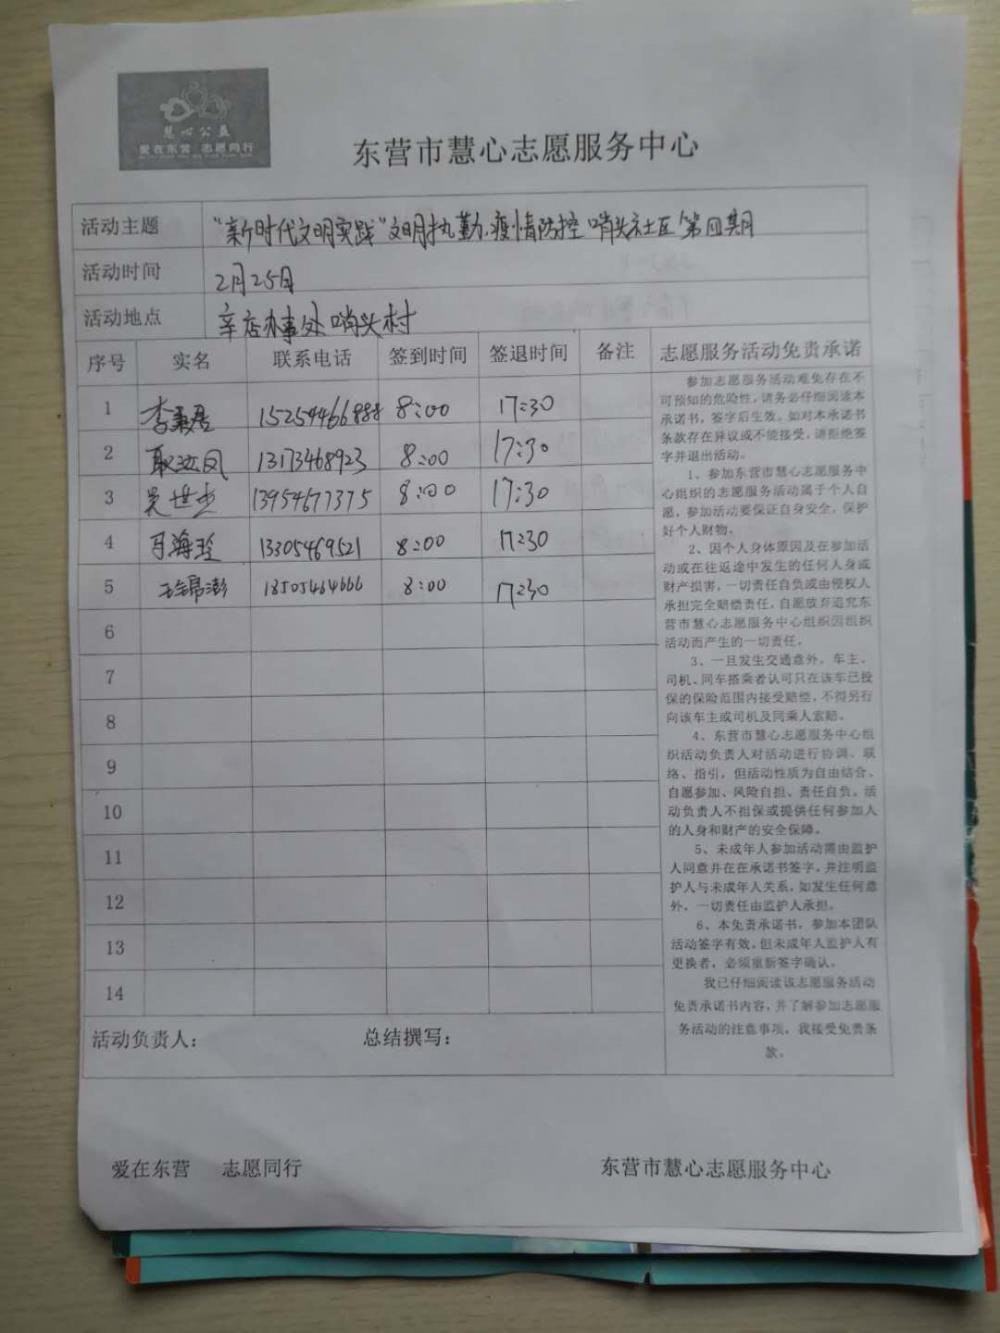 慧心公益
爱在东营 志愿同行
东营市慧心志愿服务中心
活动主题 "新时代文明实践"文明执勤.疫情防控 哨头社区第四期
活动时间 2月25日
活动地点 辛店办事处哨头村
序号 实名 联系电话 签到时间 签退时间 备注 志愿服务活动免责承诺
1 15254466888 8:00 17:30
2 13173468923 8:00 17:30
3 吴世杰 13954677375 8:00 17:30
4 马海玲 13305469521 8:00 17:30
5 18505464666 8:00 17:30
6
7
8
9
10
11
12
13
14
参加志愿服务活动难免存在不
可预知的危险性，请务必仔细阅读本
承诺书，签字后生效。如对本承诺书
条款存在异议或不能接受，请拒绝签
字并退出活动。
1、参加东营市慧心志愿服务中
心组织的志愿服务活动属于个人自
愿，参加活动要保证自身安全，保护
好个人财物。
2、因个人身体原因及在参加活
动或在往返途中发生的任何人身或
财产损害，一切责任自负或由侵权人
承担完全赔偿责任，自愿放弃追究东
营市慧心志愿服务中心组织因组织
活动而产生的一切责任。
3、一旦发生交通意外，车主、
司机、同车搭乘者认可只在该车已投
保的保险范围内接受赔偿，不得另行
向该车主或司机及同乘人索赔。
4、东营市慧心志愿服务中心组
织活动负责人对活动进行协调、联
络、指引，但活动性质为自由结合、
自愿参加、风险自担、责任自负。活
动负责人不担保或提供任何参加人
的人身和财产的安全保障。
5、未成年人参加活动需由监护
人同意并在在承诺书签字，并注明监
护人与未成年人关系，如发生任何意
外，一切责任由监护人承担。
6、本免责承诺书，参加本团队
活动签字有效，但未成年人监护人有
更换者，必须重新签字确认。
我已仔细阅读该志愿服务活动
免责承诺书内容，并了解参加志愿服
务活动的注意事项，我接受免责条
款。
活动负责人： 总结撰写：
爱在东营 志愿同行 东营市慧心志愿服务中心